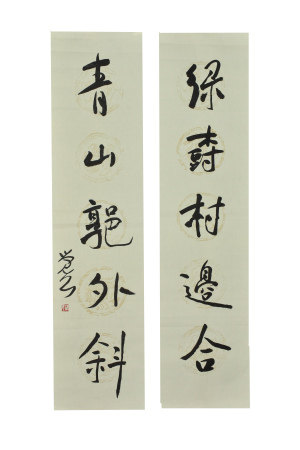 绿樹村邊合
青山郭外斜